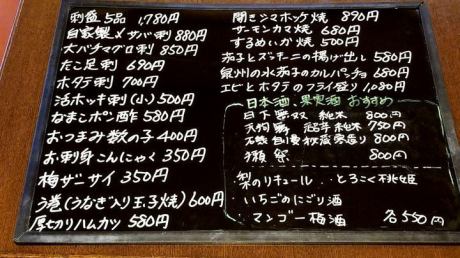 刺盛 5品 1,780円
自家製〆サバ刺 880円
大バチマグロ刺 850円
たこ足刺 690円
ホタテ刺 700円
活ホッキ刺(小) 500円
なまこポン酢 580円
おつまみ数の子 400円
お刺身こんにゃく 350円
梅ザーサイ 350円
う巻(うなぎ入り玉子焼) 600円
厚切りハムカツ 580円
開きシマホッケ焼 890円
サーモンカマ焼 680円
するめいか焼 500円
茄子とズッキーニの揚げ出し 580円
泉州の水茄子のカルパッチョ 680円
エビとホタテのフライ盛り 1,080円
日本酒、果実酒 おすすめ
日下無双 純米 800円
天狗舞 純米 750円
石鎚 800円
獺祭 800円
梨のリキュール...とろこく桃姫
いちごのにごり酒
マンゴー梅酒 各550円